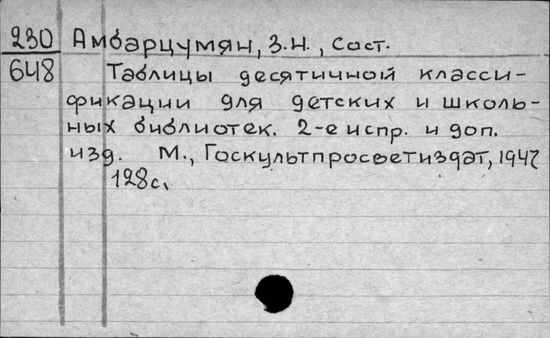 230 Амбарцумян, З.Н., сост.
648 Таблицы десятичной класси-
фикации для детских и школь-
ных библиотек. 2-е испр. и доп.
изд. М., Госкультпросветиздат, 1947
128с.